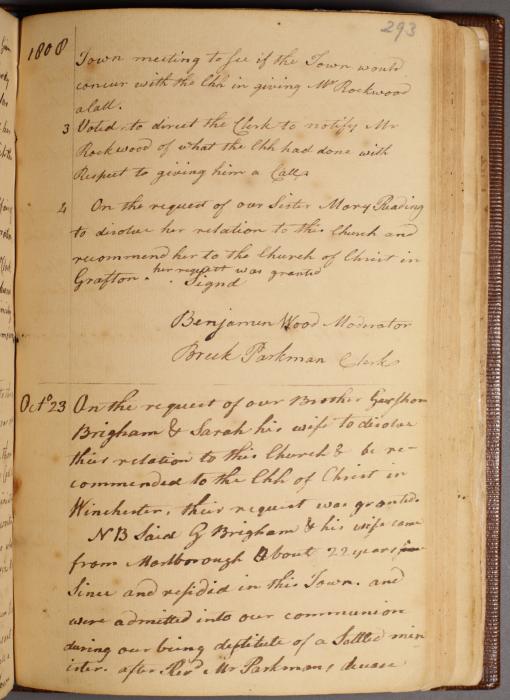 293
1808
Town meeting to see if the Town would
concur with the Chh in giving Mr Rockwood
a Call.
3 Voted to direct the Clerk to notify Mr
Rockwood of what the Chh had done with
Respect to giving him a Call.
4 On the request of our Sister Mary Reading
to disolve her relation to this Church and
recommend her to the Church of Christ in
Grafton. her request was granted
Signd
Benjamen Wood Moderator
Breck Parkman Clerk
Octo 23 On the request of our Brother Gershom
Brigham & Sarah his wife to disolve
thier relation to this Church & be re-
commended to the Chh of Christ in
Winchester, their request was granted.
NB Said G Brigham & his wife came
from Marlborough About 22 years
Since and resided in this Town. and
were admitted into our communion
during our being destitute of a Settled min
ister. after Revd Mr Parkmans, decase